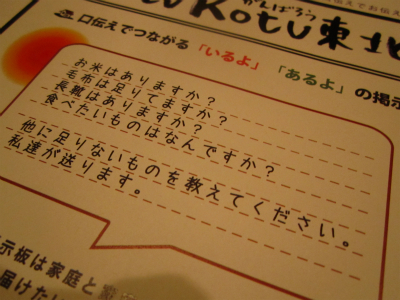 がんばろう
Kotu東北
口伝えでつながる 「いるよ」 「あるよ」 の掲示
お米はありますか?
毛布は足りてますか?
長靴はありますか?
食べたいものはなんですか?
他に足りないものを教えてください。
私達が送ります。
示板は家庭と家
届けたい